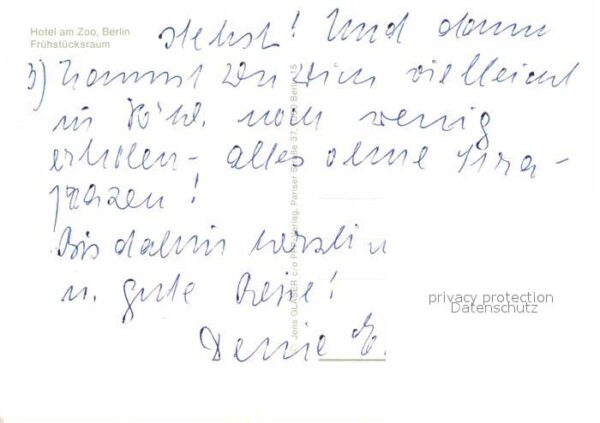 Hotel am Zoo, Berlin
Frühstücksraum
stehst! Und dann
3) kannst Du Dich vielleicht
in noch wenig
erholen - alles ohne Stra-
pazen!
Bis dahin herzli
u. gute Reise!
Deine E.
Jens GLÄSER c/o Verlag, Pariser Straße 37, Berlin 15
privacy protection
Datenschutz